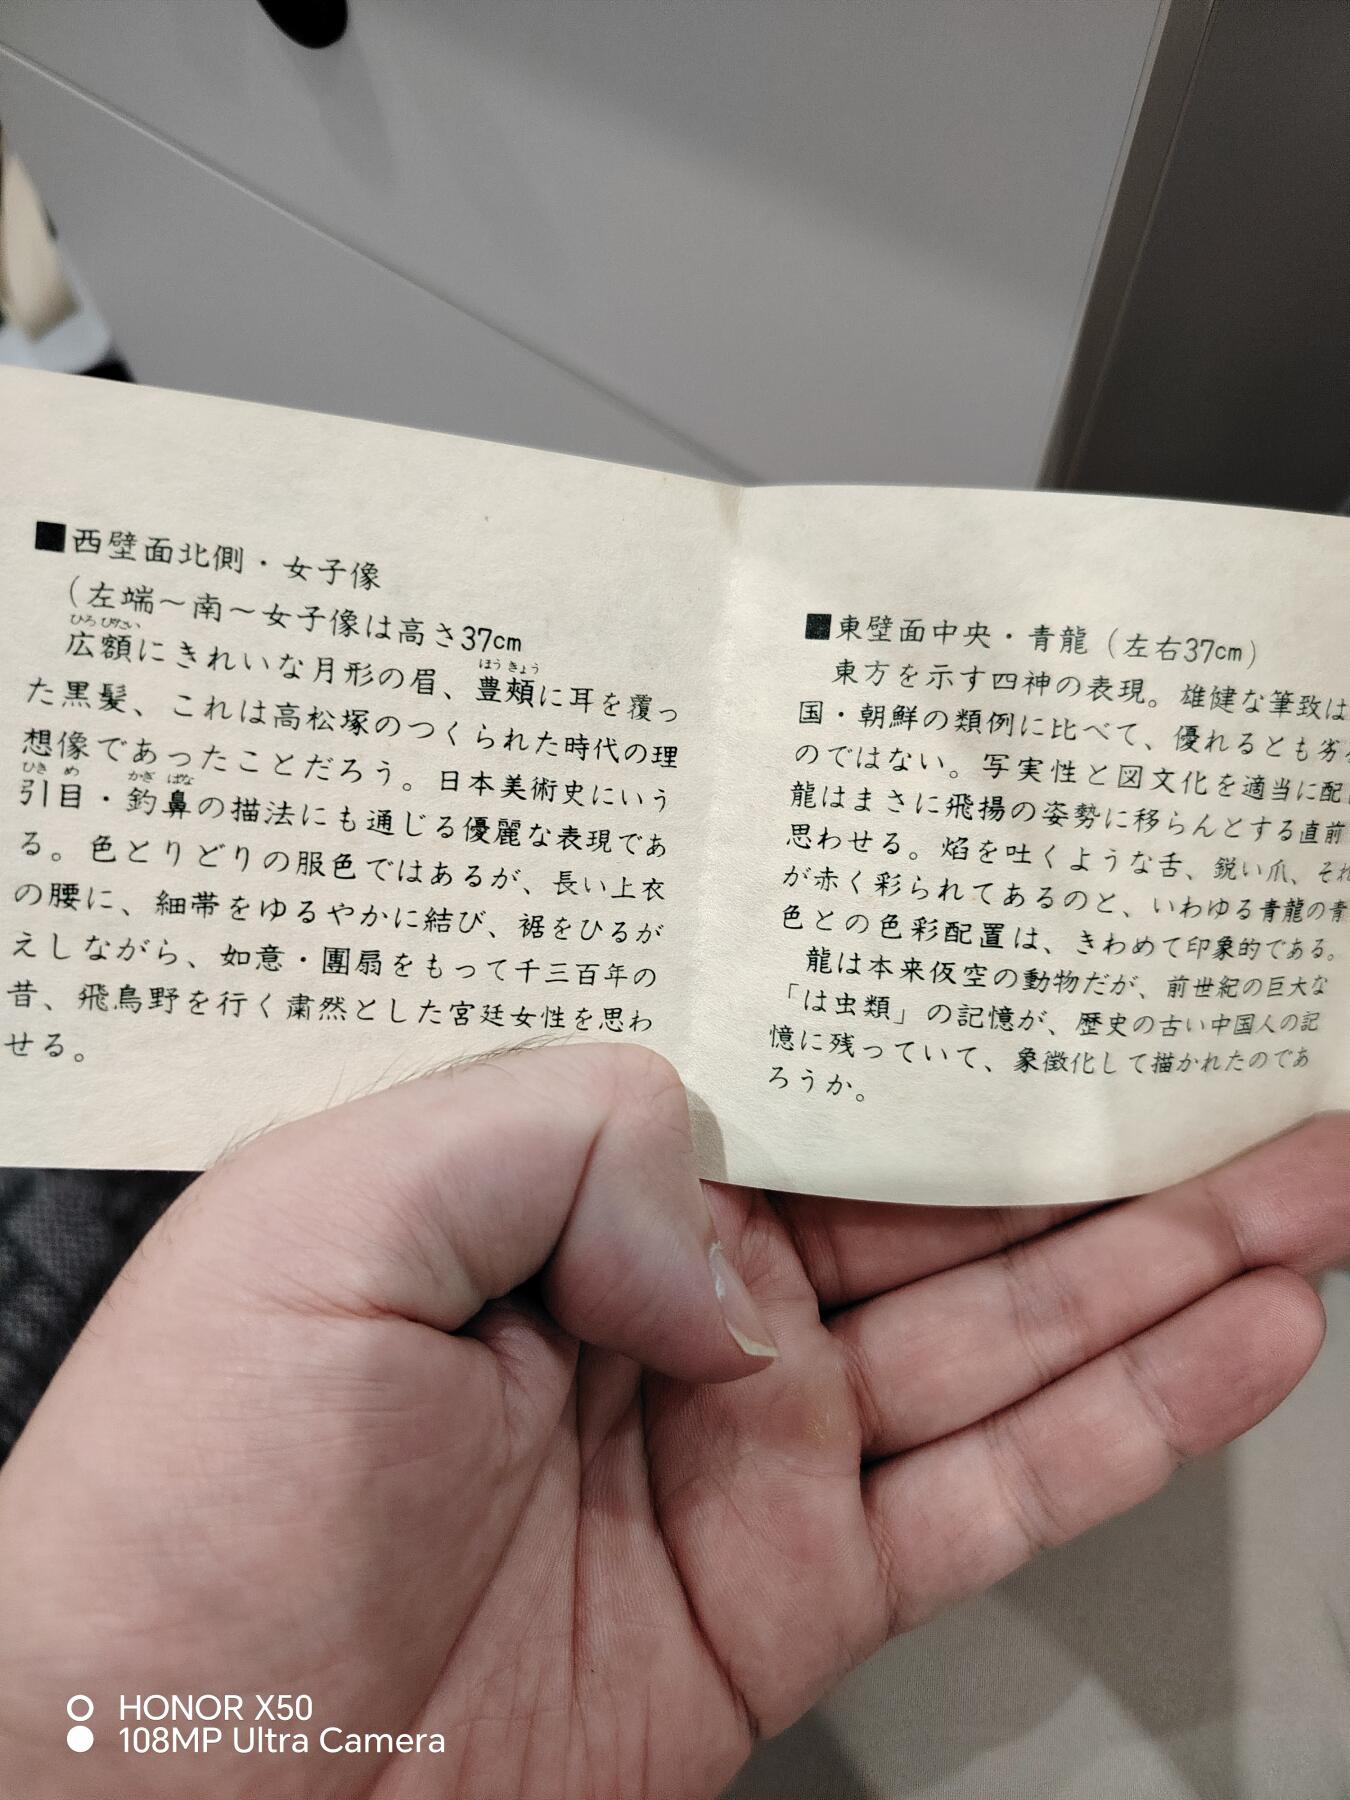 ■西壁面北側・女子像
(左端～南～女子像は高さ37cm
ひろ びたい
広額にきれいな月形の眉、豊頬に耳を覆っ
ほう きょう
た黒髪、これは高松塚のつくられた時代の理
想像であったことだろう。日本美術史にいう
ひき め かぎ ばな
引目・釣鼻の描法にも通じる優麗な表現であ
る。色とりどりの服色ではあるが、長い上衣
の腰に、細帯をゆるやかに結び、裾をひるが
えしながら、如意・團扇をもって千三百年の
昔、飛鳥野を行く粛然とした宮廷女性を思わ
せる。
■東壁面中央・青龍(左右37cm)
東方を示す四神の表現。雄健な筆致は
国・朝鮮の類例に比べて、優れるとも劣
のではない。写実性と図文化を適当に配
龍はまさに飛揚の姿勢に移らんとする直前
思わせる。焰を吐くような舌、鋭い爪、それ
が赤く彩られてあるのと、いわゆる青龍の青
色との色彩配置は、きわめて印象的である。
龍は本来仮空の動物だが、前世紀の巨大な
「は虫類」の記憶が、歴史の古い中国人の記
憶に残っていて、象徴化して描かれたのであ
ろうか。
HONOR X50
108MP Ultra Camera